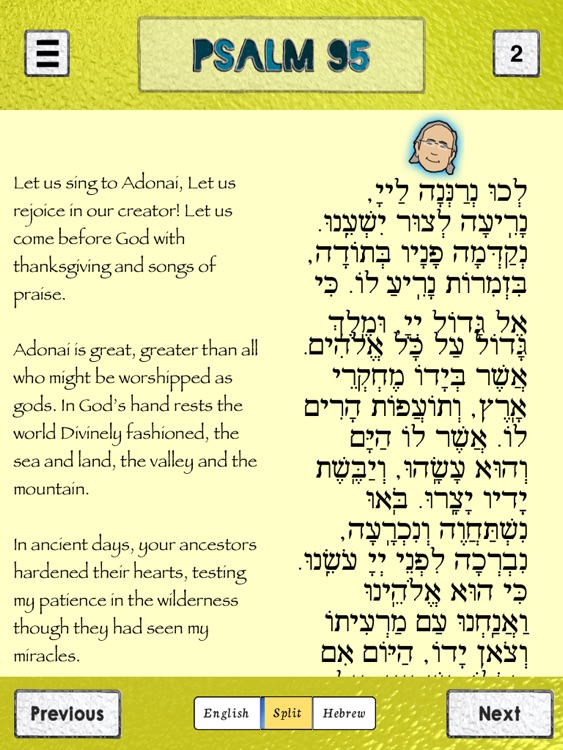 PSALM 95
2
Let us sing to Adonai, Let us
rejoice in our creator! Let us
come before God with
thanksgiving and songs of
praise.
Adonai is great, greater than all
who might be worshipped as
gods. In God's hand rests the
world Divinely fashioned, the
sea and land, the valley and the
mountain.
In ancient days, your ancestors
hardened their hearts, testing
my patience in the wilderness
though they had seen my
miracles.
לְכוּ נְרַנְּנָה לַייָ,
נָרִֽיעָה לְצוּר יִשְׁעֵֽנוּ.
נְקַדְּמָה פָנָיו בְּתוֹדָה,
בִּזְמִרוֹת נָרִֽיעַ לוֹ. כִּי
אֵל גָּדוֹל יְיָ, וּמֶֽלֶךְ
גָּדוֹל עַל כָּל אֱלֹהִים.
אֲשֶׁר בְּיָדוֹ מֶחְקְרֵי
אָֽרֶץ, וְתוֹעֲפוֹת הָרִים
לוֹ. אֲשֶׁר לוֹ הַיָּם
וְהוּא עָשָֽׂהוּ, וְיַבֶּֽשֶׁת
יָדָיו יָצָֽרוּ. בֹּֽאוּ
נִשְׁתַּחֲוֶה וְנִכְרָֽעָה,
נִבְרְכָה לִפְנֵי יְיָ עֹשֵֽׂנוּ.
כִּי הוּא אֱלֹהֵֽינוּ
וַאֲנַֽחְנוּ עַם מַרְעִיתוֹ
וְצֹאן יָדוֹ, הַיּוֹם אִם
Previous
English Split Hebrew
Next